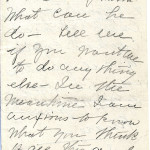 What can he
do - Tell me
if you want me
to do anything
else - In the
meantime I am
anxious to know
what you think